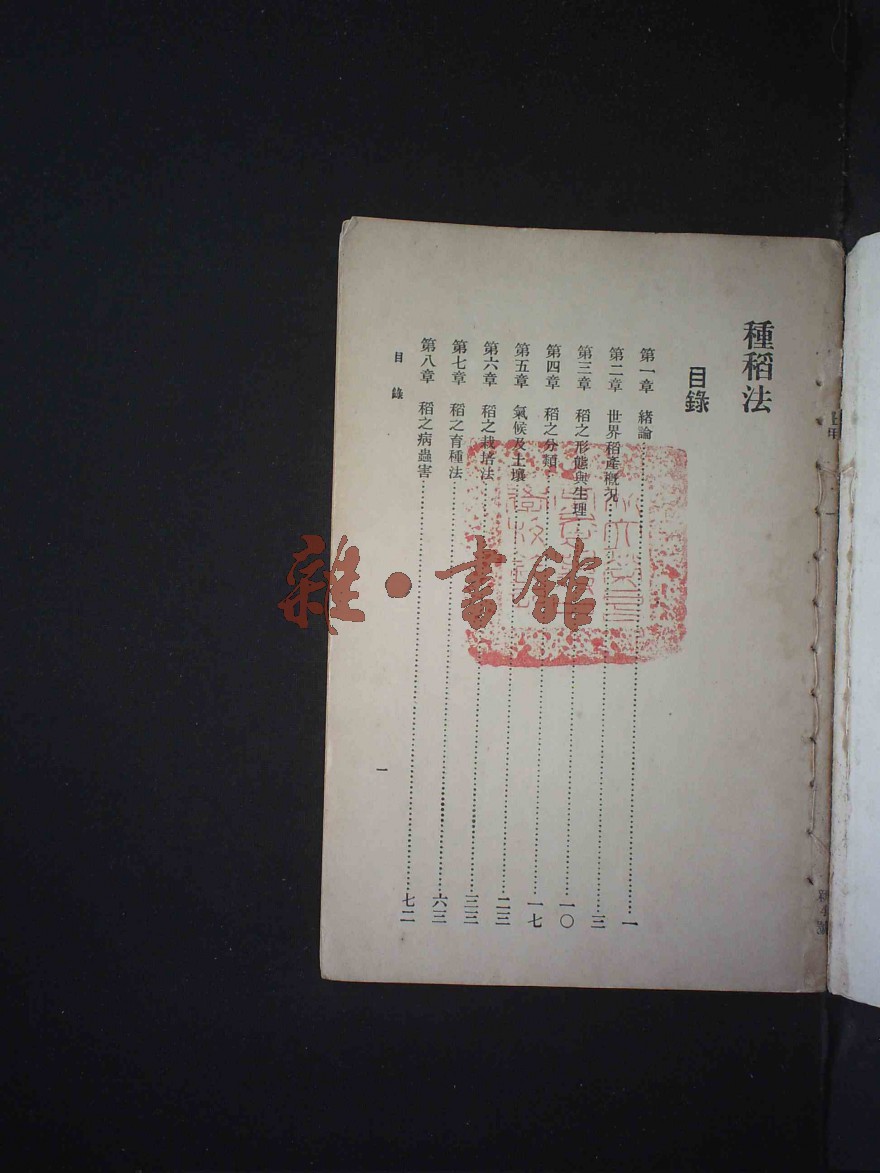 種稻法
目錄
第一章　緒論……一
第二章　世界稻產概況……三
第三章　稻之形態與生理……一〇
第四章　稻之分類……一七
第五章　氣候及土壤……二三
第六章　稻之栽培法……三三
第七章　稻之育種法……六三
第八章　稻之病蟲害……七二
目錄
一
雜·書館